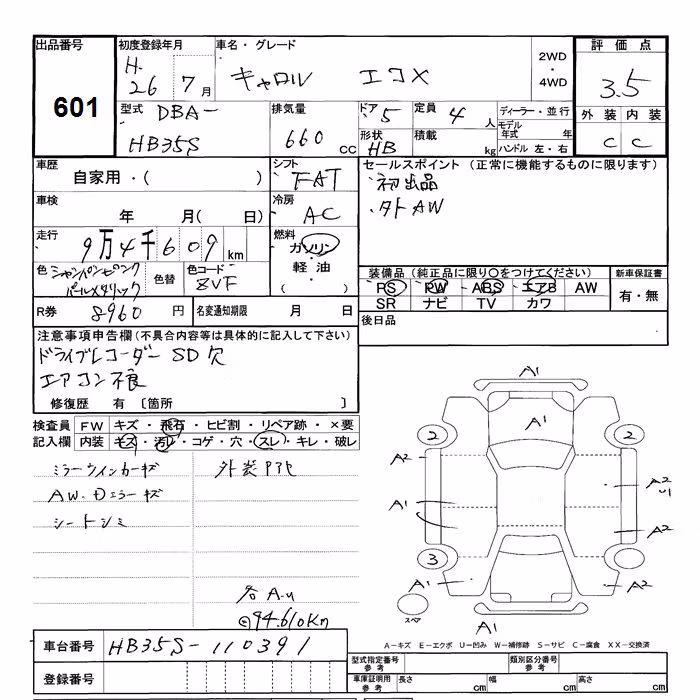 出品番号 初度登録年月 車名・グレード 評価点
601
H.
26 7月 キャロル エコX 2WD・4WD 3.5
型式 DBA- 排気量 ドア 5 定員 4人 ディーラー・並行 外装 内装
モデル年式 年
HB35S 660cc 形状 HB 積載 kg ハンドル 左・右 C C
車歴 シフト セールスポイント (正常に機能するものに限ります)
自家用・( ) FAT 初出品
車検 冷房 外AW
年 月( 日) AC
走行 燃料
9万4千609km ガソリン
軽油
( )
色 シャンパンピンク 色替 色コード 装備品(純正品に限り○をつけてください) 新車保証書
パールメタリック 8VF PS PW ABS エアB AW 有・無
SR ナビ TV カワ
R券 8960円 名変通知期限 月 日 後日品
注意事項申告欄(不具合内容等は具体的に記入して下さい)
ドライブレコーダー SD欠
エアコン不良
修復歴 有 〔箇所 〕
検査員記入欄 FW キズ・飛石・ヒビ割・リペア跡・×要
内装 キズ・汚れ・コゲ・穴・スレ・キレ・破レ
ミラーウインカーキズ
AW.Dミラーキズ
シートシミ
A1
A1
2 2
A2 A2
A1 A2
3
A1 A2
スペア
A1
94.610Km
車台番号 HB35S-110391
登録番号
A-キズ E-エクボ U-凹み W-補修跡 S-サビ C-腐食 XX-交換済
型式指定番号 参考 類別区分番号 参考
車庫証明用 参考 長さ cm 幅 cm 高さ cm